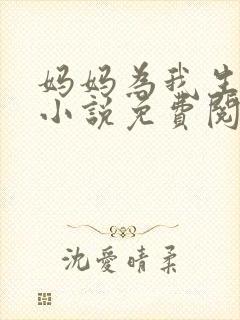 妈妈為我生
小說免費閱
沈愛晴柔